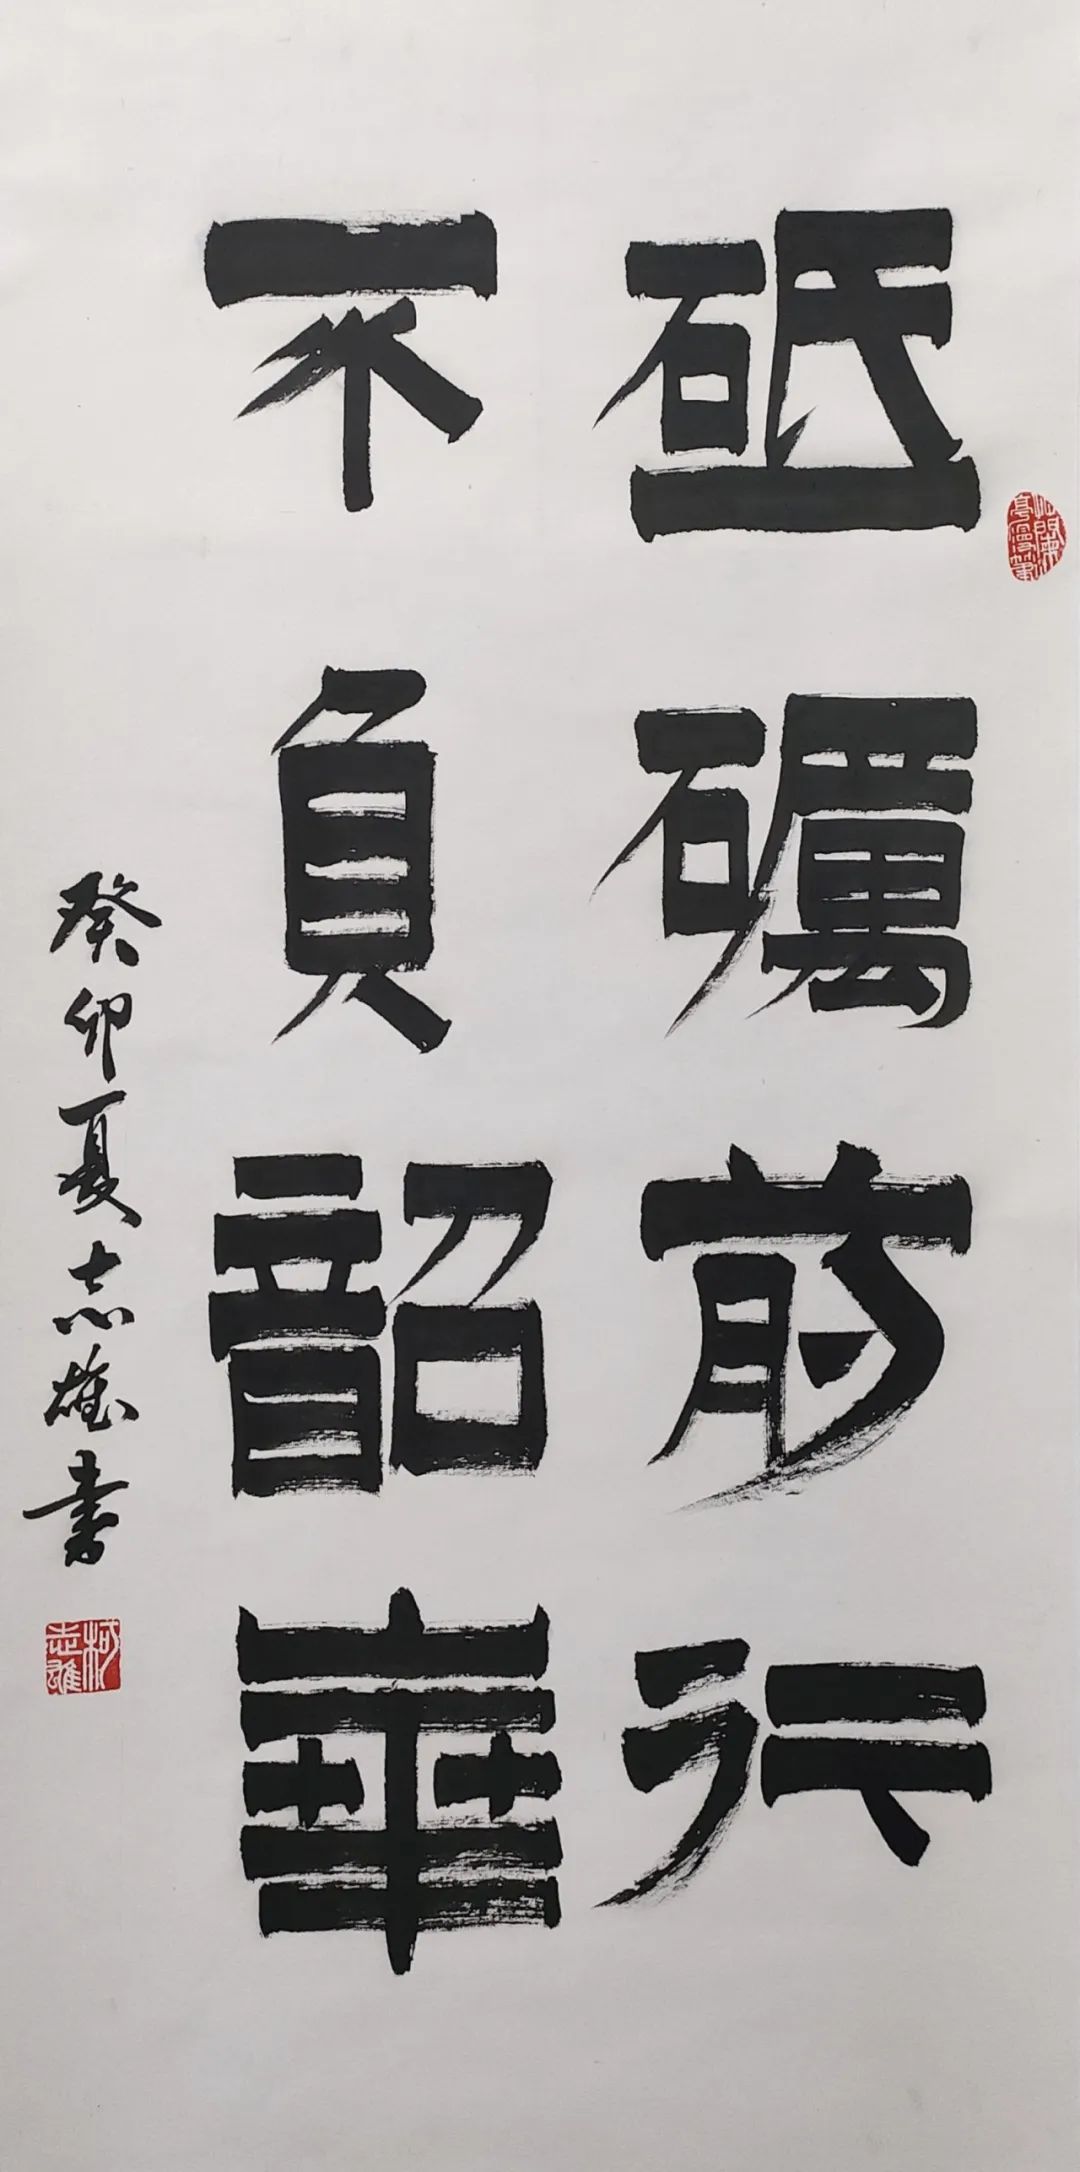 砥礪前行
不負韶華
癸卯夏志雄書
柯志雄